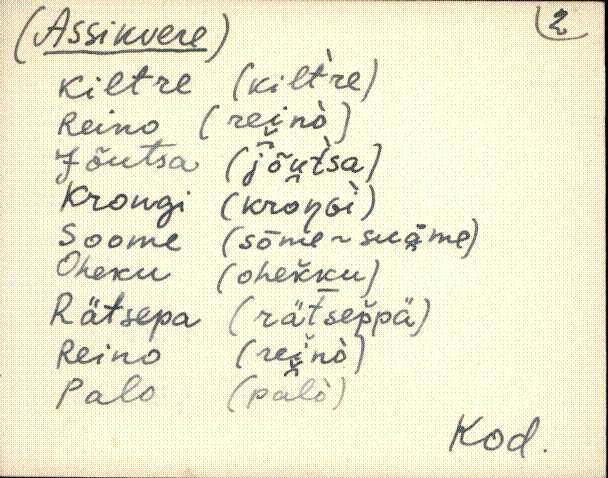 (Assikvere) 2
Kiltre (kilt̀re)
Reino (rei̯nò)
Jõutsa (jõu̯t̀sa)
Krongi (kroŋGì)
Soome (sōme ~ suå̯me)
Oheku (ohek̆ku)
Rätsepa (rätsep̆pä)
Reino (rei̯nò)
Palo (palò)
Kod.